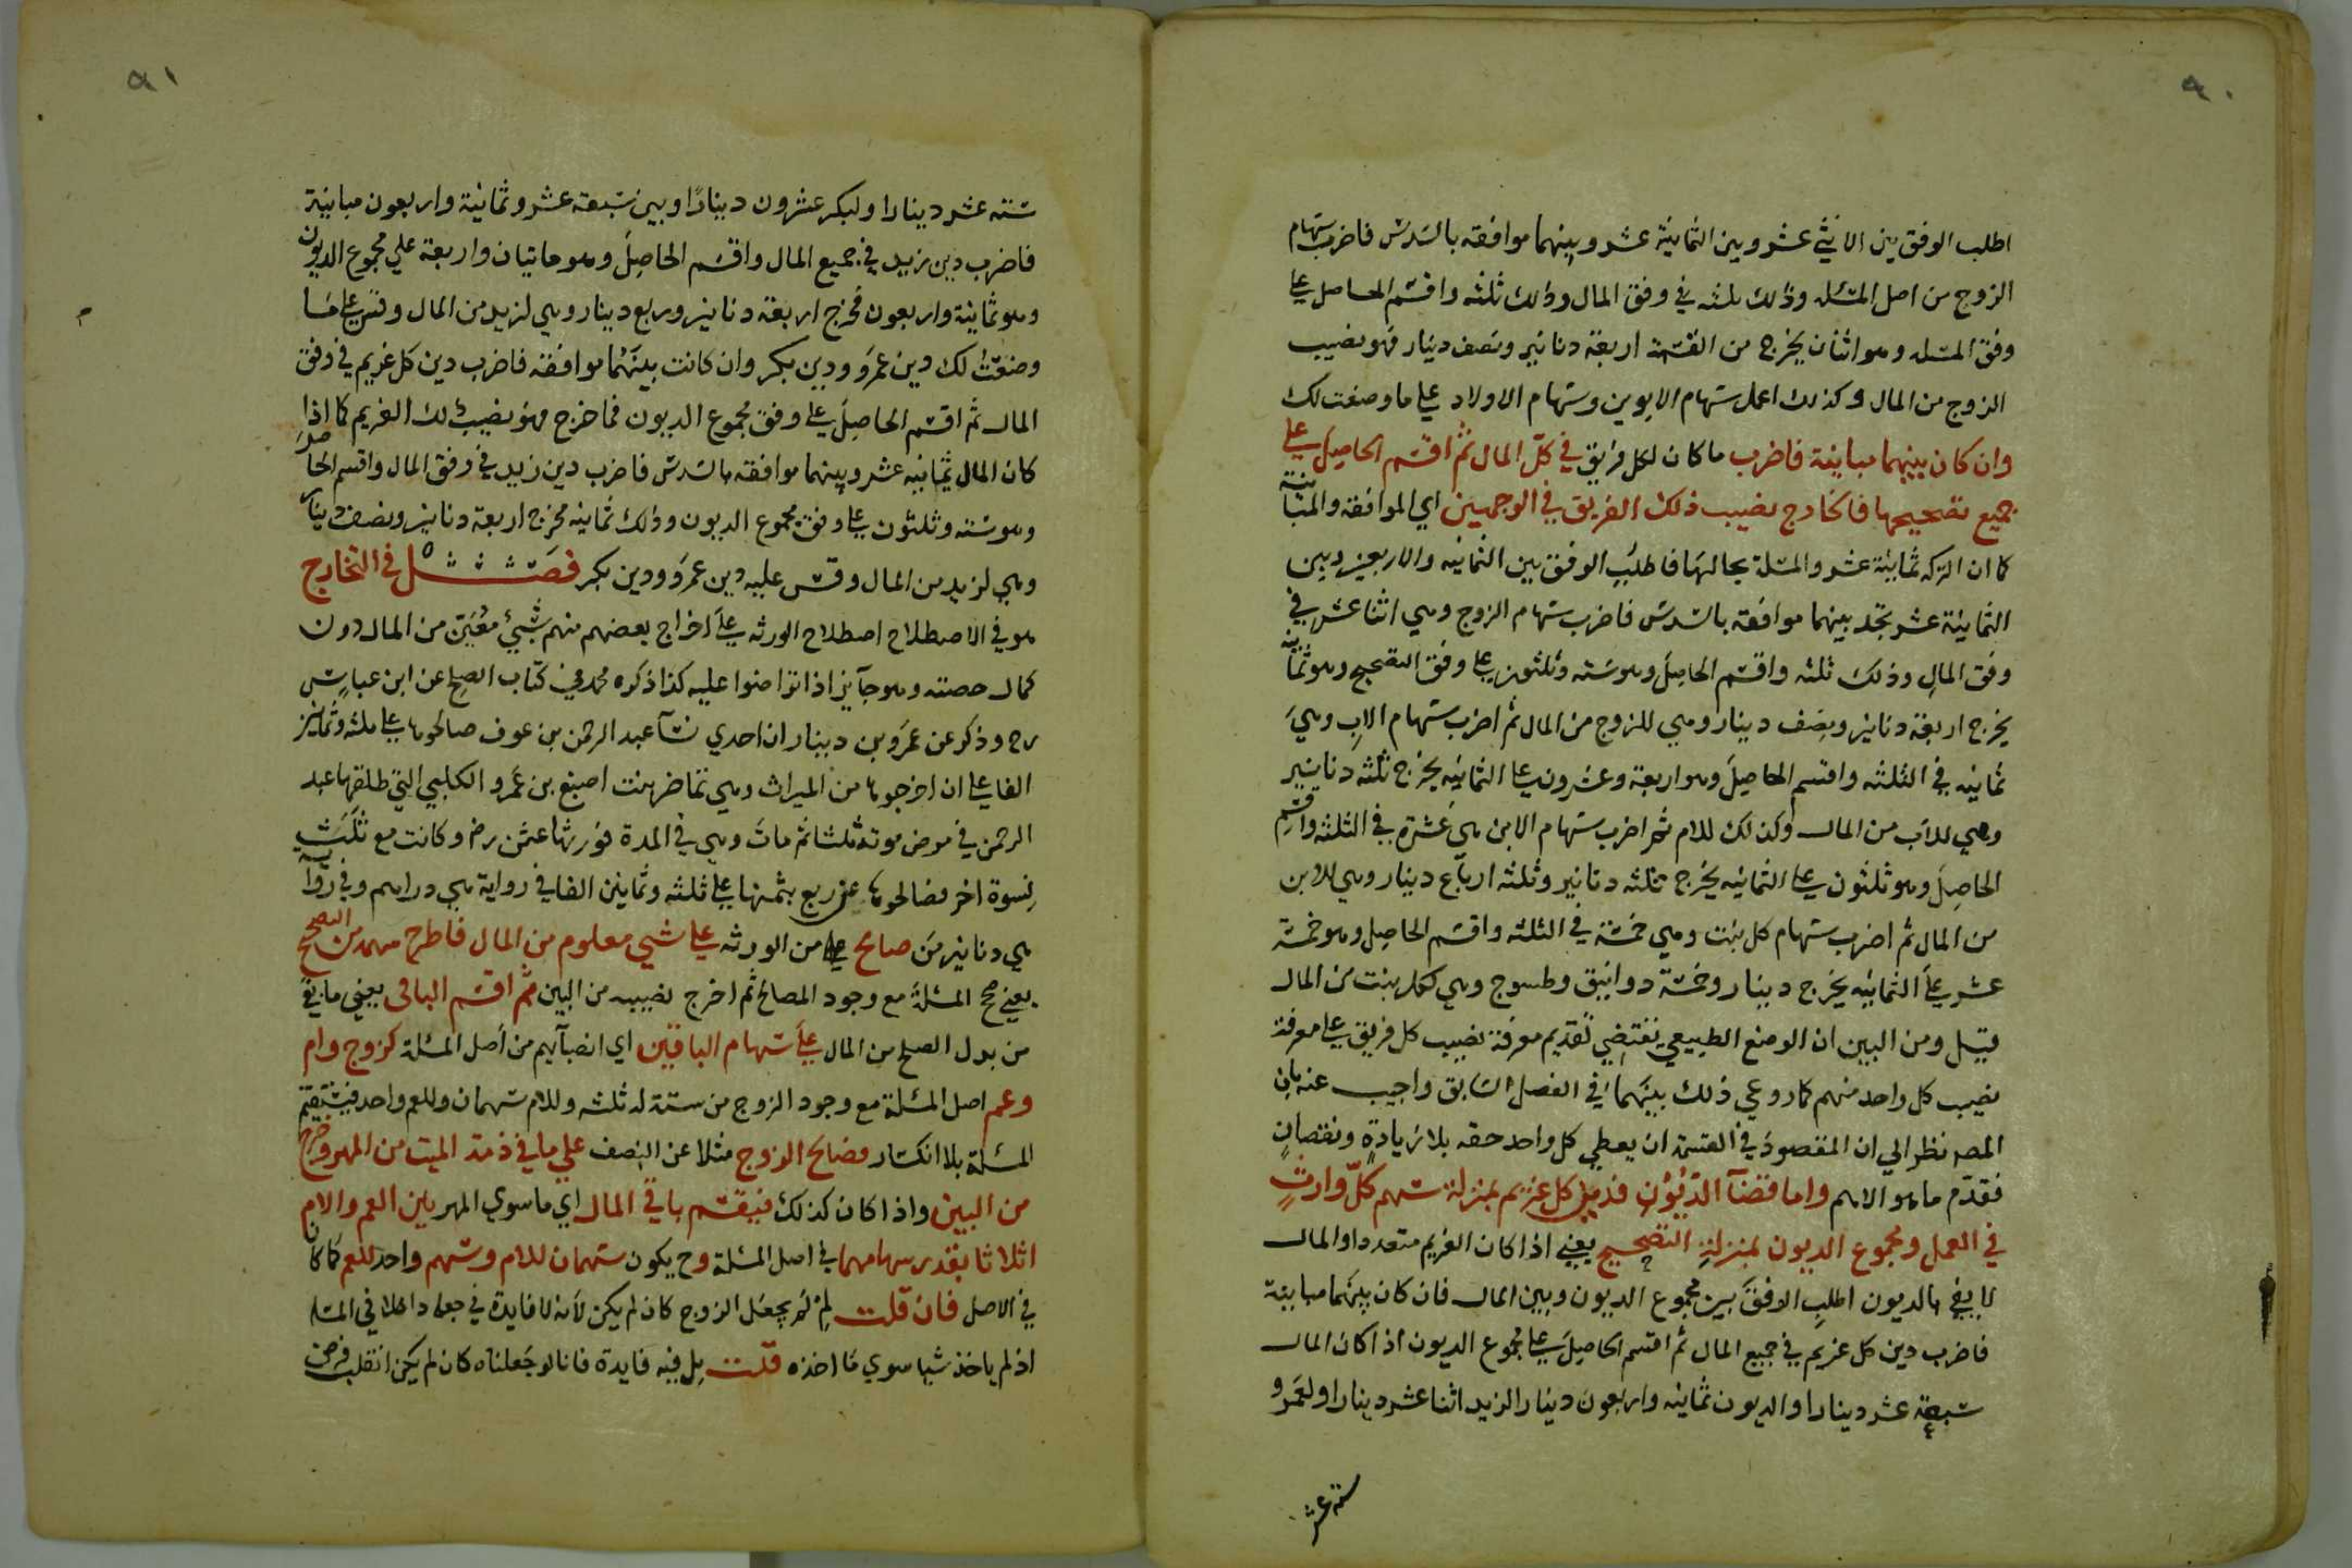 ٩٠
اطلب الوفق بين الاثني عشر وبين الثمانية عشر وبينهما موافقه بالسدس فاضرب سهام
الزوج من اصل المسئله وذلك ثلثه في وفق المال وذلك ثلثه واقسم الحاصل على
وفق المسئله وهو اثنان يخرج من القسمة اربعة دنانير ونصف دينار فهو نصيب
الزوج من المال وكذلك اعمل سهام الابوين وسهام الاولاد على ما وصفت لك
وان كان بينهما مباينة فاضرب ما كان لكل فريق في كل المال ثم اقسم الحاصل على
جميع تصحيحها فالخارج نصيب ذلك الفريق في الوجهين اي الموافقة والمباينة
كما ان التركه ثمانية عشر والمسئلة بحالها فاطلب الوفق بين الثمانيه والاربعين وبين
الثمانية عشر تجد بينهما موافقة بالسدس فاضرب سهام الزوج وهي اثنا عشر في
وفق المال وذلك ثلثه واقسم الحاصل وهو سته وثلثون على وفق التصحيح وهو ثمانيه
يخرج اربعة دنانير ونصف دينار وهي للزوج من المال ثم اضرب سهام الاب وهي
ثمانيه في الثلثه واقسم الحاصل وهو اربعة وعشرون على الثمانيه يخرج ثلثه دنانير
وهي للاب من المال وكذلك للام ثم اضرب سهام الابن هي عشرة في الثلثه واقسم
الحاصل وهو ثلثون على الثمانيه يخرج ثلثه دنانير وثلثه ارباع دينار وهي للابن
من المال ثم اضرب سهام كل بنت وهي خمسة في الثلثه واقسم الحاصل وهو خمسة
عشر على الثمانيه يخرج دينار وخمسة دوانيق وطسوج وهي لكل بنت من المال
قيل ومن البين ان الوضع الطبيعي يقتضي تقديم معرفة نصيب كل فريق على معرفة
نصيب كل واحد منهم كما روعي ذلك بينهما في الفصل السابق واجيب عنه بان
المصه نظر الي ان المقصود في القسمة ان يعطي كل واحد حقه بلا زيادة ونقصان
فقدم ما هو الاهم واما قضآ الديون فدين كل غريم بمنزلة سهم كل وارث
في العمل ومجموع الديون بمنزلة التصحيح يعني اذا كان الغريم متعددا والمال
لا يفي بالديون اطلب الوفق بين مجموع الديون وبين المال فان كان بينهما مباينة
فاضرب دين كل غريم في جميع المال ثم اقسم الحاصل على مجموع الديون اذا كان المال
سبعة عشر دينارا والديون ثمانيه واربعون دينارا لزيد اثنا عشر دينارا ولعمرو
ستة عشر
٩١
ستة عشر دينارا ولبكر عشرون دينارا وبين سبعة عشر وثمانية واربعون مباينة
فاضرب دين زيد في جميع المال واقسم الحاصل وهو مائتان واربعة علي مجموع الديون
وهو ثمانية واربعون فخرج اربعة دنانير وربع دينار وهي لزيد من المال وقس على ما
وصفت لك دين عمرو ودين بكر وان كانت بينهما موافقه فاضرب دين كل غريم في وفق
المال ثم اقسم الحاصل على وفق مجموع الديون فما خرج فهو نصيب ذلك الغريم كما اذا
كان المال ثمانيه عشر وبينهما موافقه بالسدس فاضرب دين زيد في وفق المال واقسم الحاصل
وهو سته وثلثون على وفق مجموع الديون وذلك ثمانيه فخرج اربعة دنانير ونصف دينار
وهي لزيد من المال وقس عليه دين عمرو ودين بكر فصل في التخارج
هو في الاصطلاح اصطلاح الورثه على اخراج بعضهم منهم بشيئ معين من المال دون
كمال حصته وهو جآيز اذا تراضوا عليه كذا ذكره محمد في كتاب الصلح عن ابن عباس
رح وذكر عن عمرو بن دينار ان احدي نسآ عبد الرحمن بن عوف صالحوها على ثلثه وثمانين
الفا على ان اخرجوها من الميراث وهي تماضر بنت اصبغ بن عمرو الكلبي التي طلقها عبد
الرحمن في مرض موته ثلثا ثم مات وهي في العدة فورثها عثمن رض وكانت مع ثلث
نسوة اخر فصالحوها عن ربع ثمنها على ثلثه وثمانين الفا في رواية هي دراهم وفي رواية
هي دنانير من صالح من الورثه على شيي معلوم من المال فاطرح سهمه من التصحيح
يعني صحح المسئلة مع وجود المصالح ثم اخرج نصيبه من البين ثم اقسم الباقي يعني ما بقي
من بدل الصلح من المال على سهام الباقين اي انصبآيهم من اصل المسئلة كزوج وام
وعم اصل المسئلة مع وجود الزوج من ستة له ثلثه وللام سهمان وللعم واحد فيستقيم
المسئلة بلا انكسار فصالح الزوج مثلا عن النصف علي ما في ذمة الميت من المهر وخرج
من البين واذا كان كذلك فيقسم باقي المال اي ما سوي المهر بين العم والام
اثلاثا بقدر سهامهما في اصل المسئلة وح يكون سهمان للام وسهم واحد للعم كما كان
في الاصل فان قلت لم لم يجعل الزوج كان لم يكن لانه لا فايدة في جعله داخلا في المسئله
اذ لم ياخذ شيا سوي ما اخذه قلت بل فيه فايدة فانا لو جعلناه كان لم يكن انقلب فرض